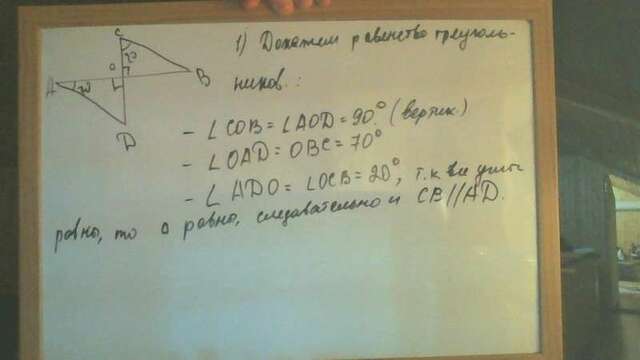 C
O
A
B
D
1) Докажем равенство треуголь-
ников.:
- ∠COB = ∠AOD = 90° (вертик.)
- ∠OAD = OBC = 70°
- ∠ADO = ∠OCB = 20°, т.к все углы
равно, то △ равно, следавательно и CB//AD.